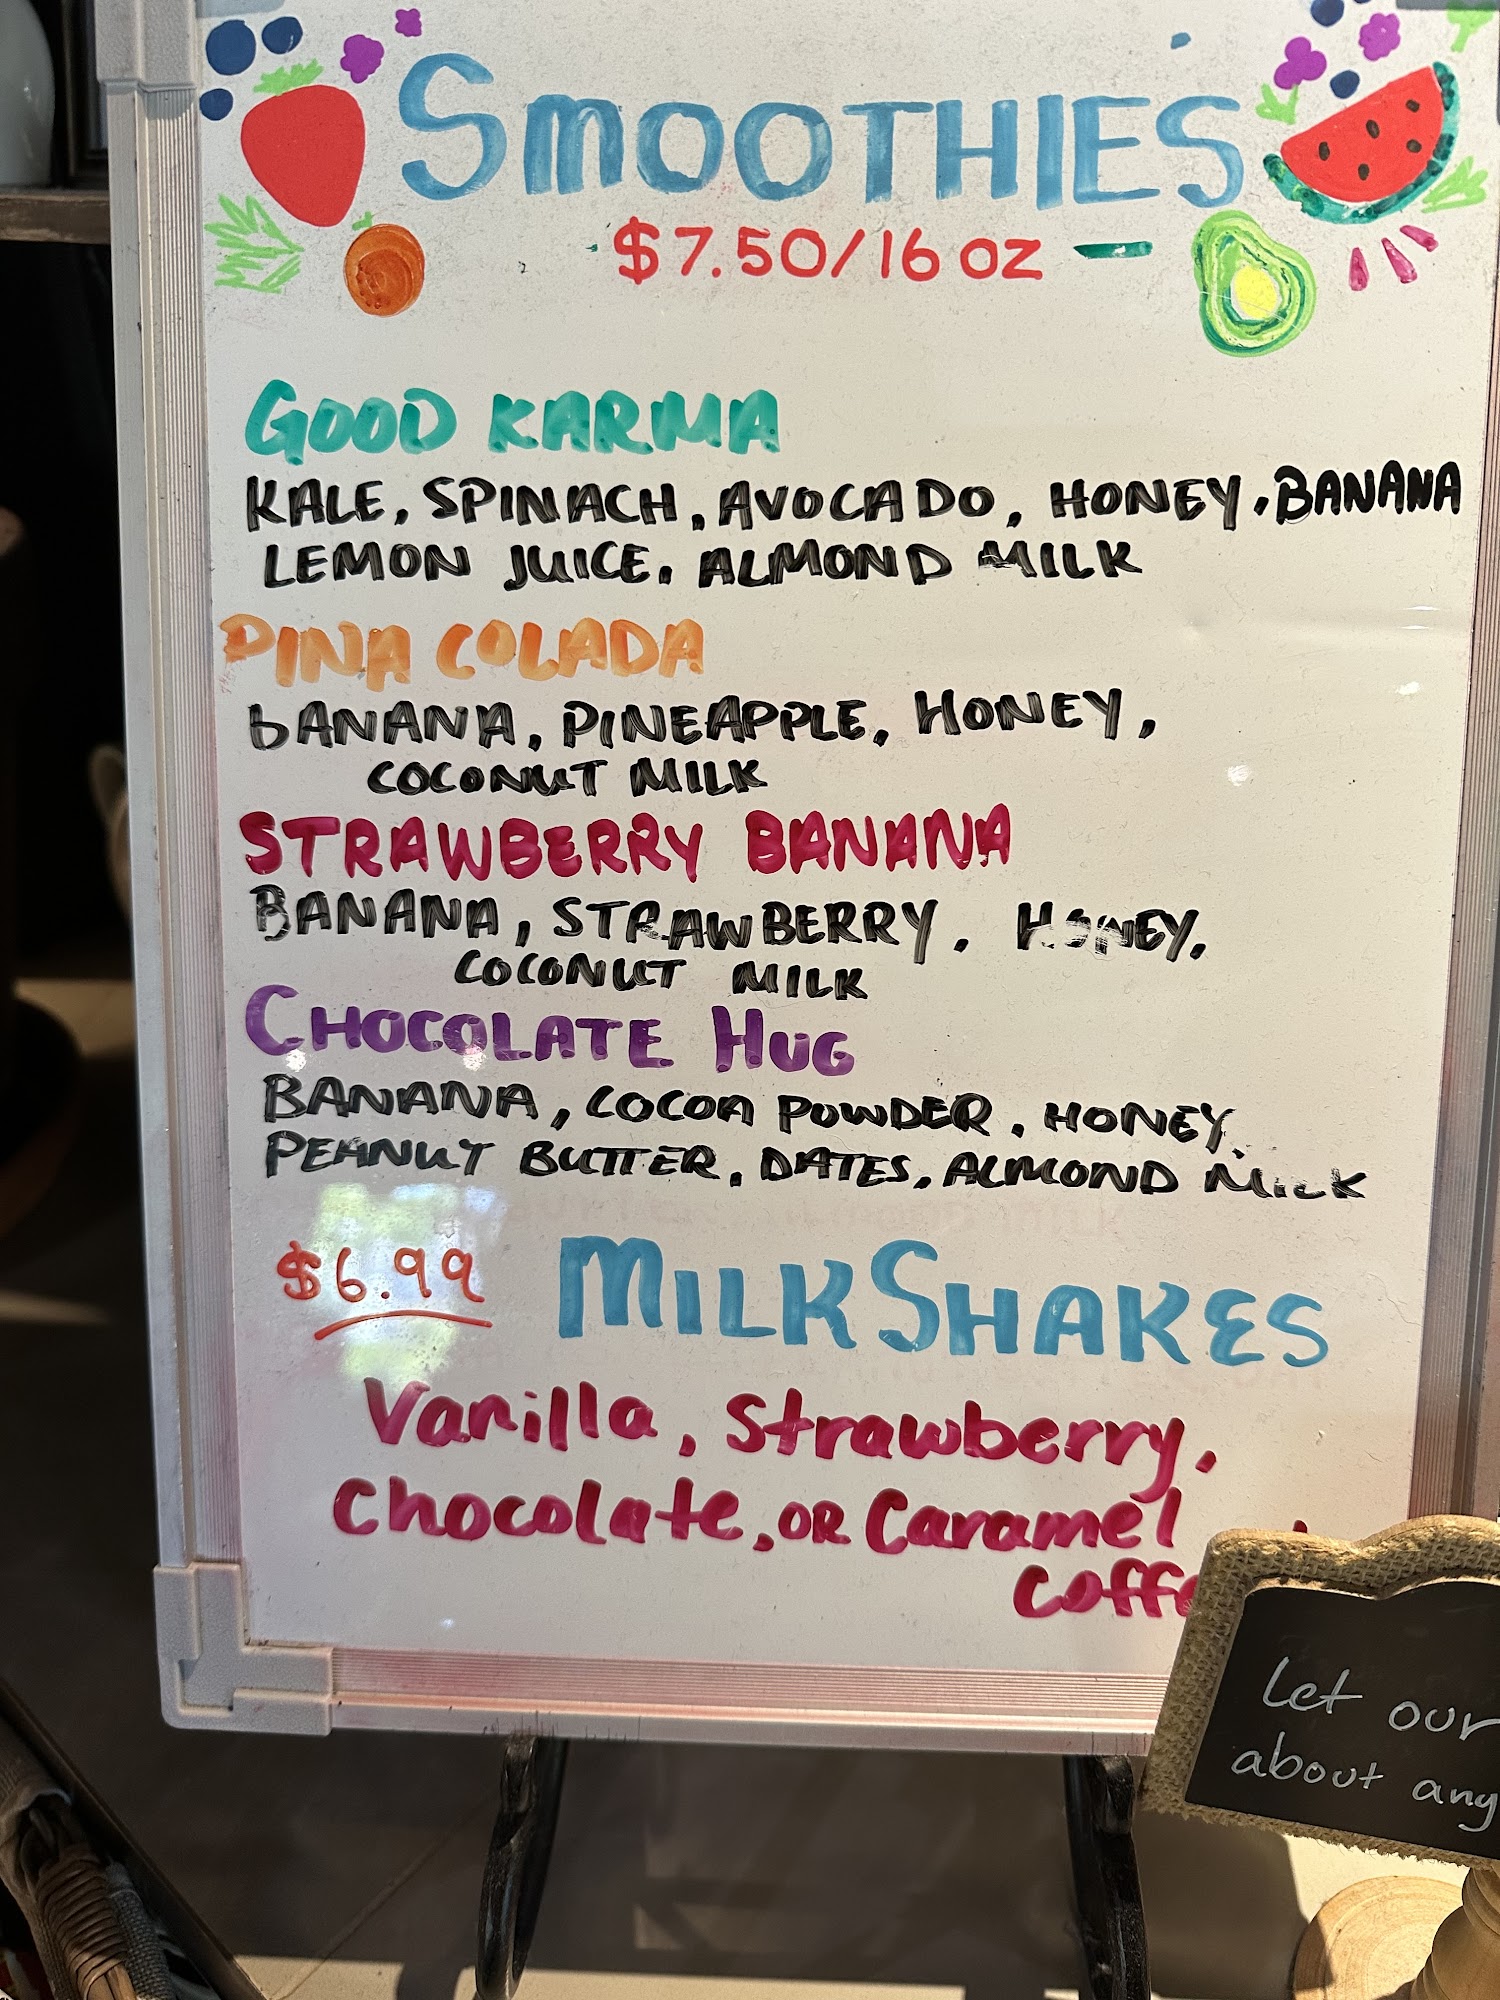 SmOOTHIES
$7.50/16 oz
GOOD KARMA
KALE, SPINACH, AVOCADO, HONEY, BANANA
LEMON JUICE, ALMOND MILK
PINA COLADA
BANANA, PINEAPPLE, HONEY,
COCONUT MILK
STRAWBERRY BANANA
BANANA, STRAWBERRY, HONEY,
COCONUT MILK
CHOCOLATE HUG
BANANA, COCOA POWDER, HONEY,
PEANUT BUTTER, DATES, ALMOND MILK
$6.99
MILKSHAKES
Vanilla, Strawberry,
Chocolate, OR Caramel
Let our
about